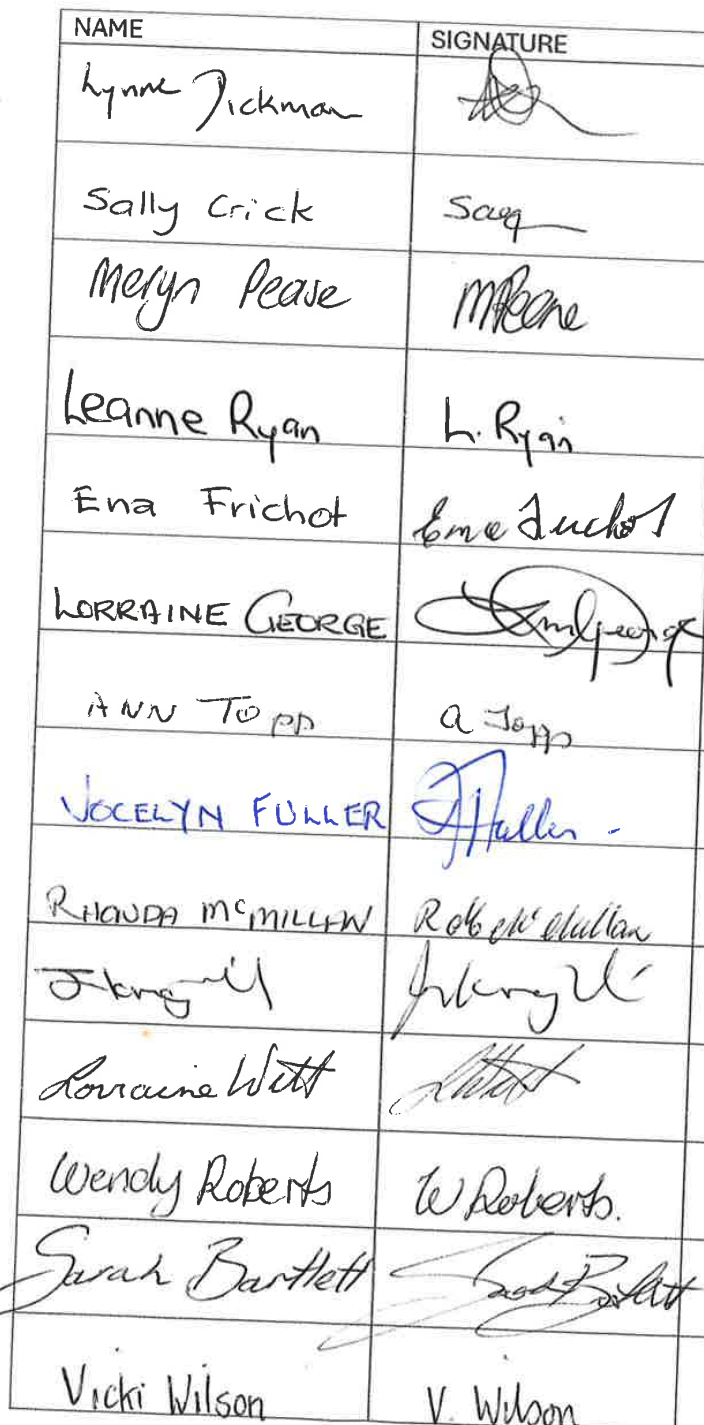 NAME SIGNATURE
Lynne Dickman
Sally Crick
Meryn Pease MPease
Leanne Ryan L. Ryan
Ena Frichot Ena Frichot
LORRAINE GEORGE
ANN TOPP a Topp
JOCELYN FULLER JFuller
RHONDA McMILLAN
Lorraine Witt
Wendy Roberts W Roberts.
Sarah Bartlett Sarah Bartlett
Vicki Wilson V. Wilson